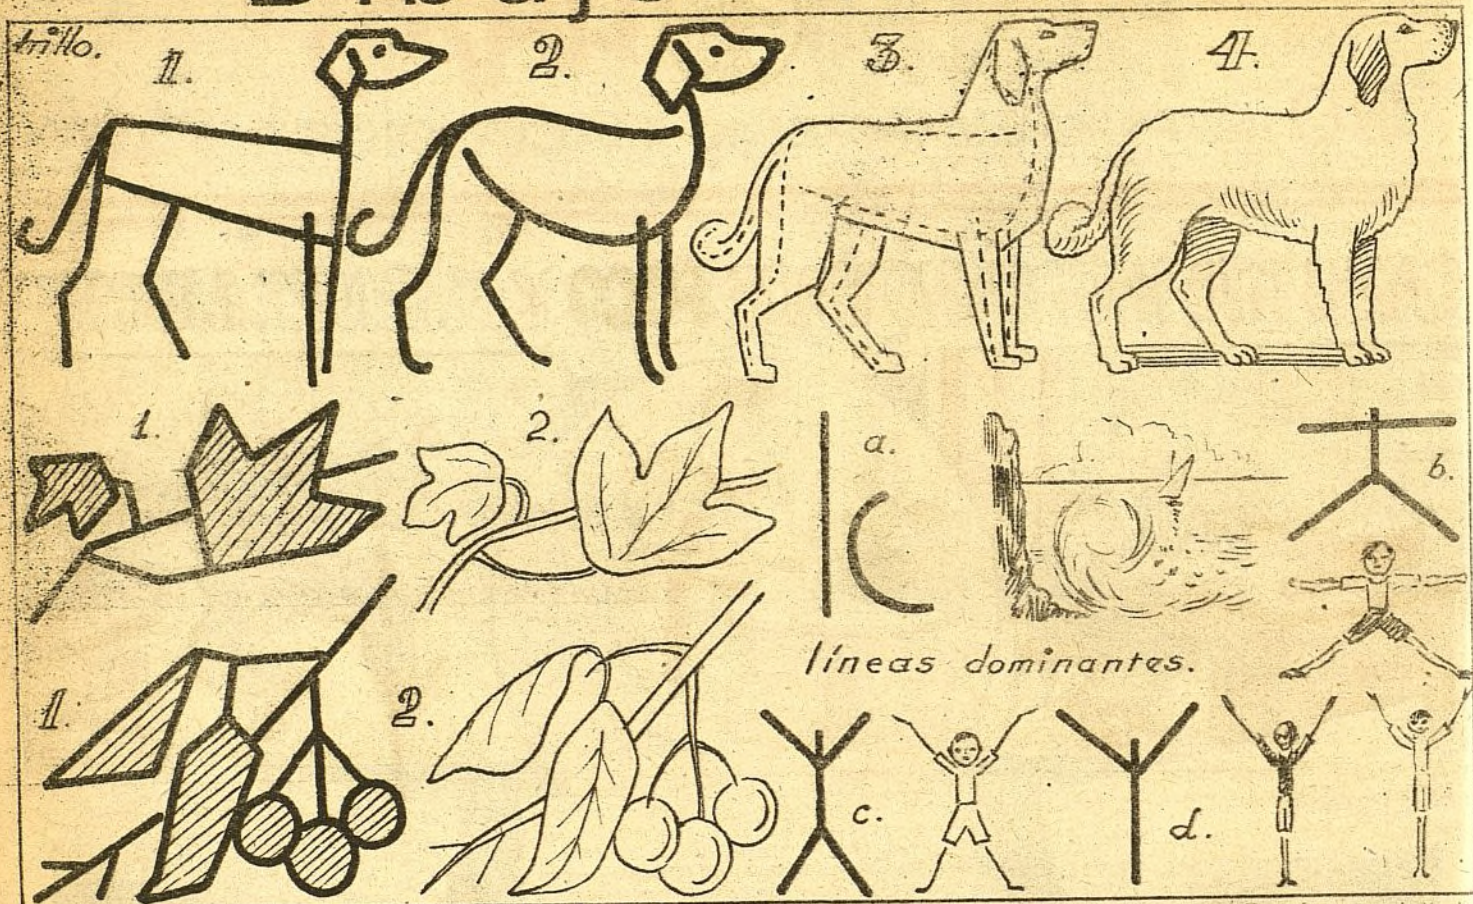 trillo.
1. 2. 3. 4.
1. 2. a. b.
líneas dominantes.
1. 2. c. d.